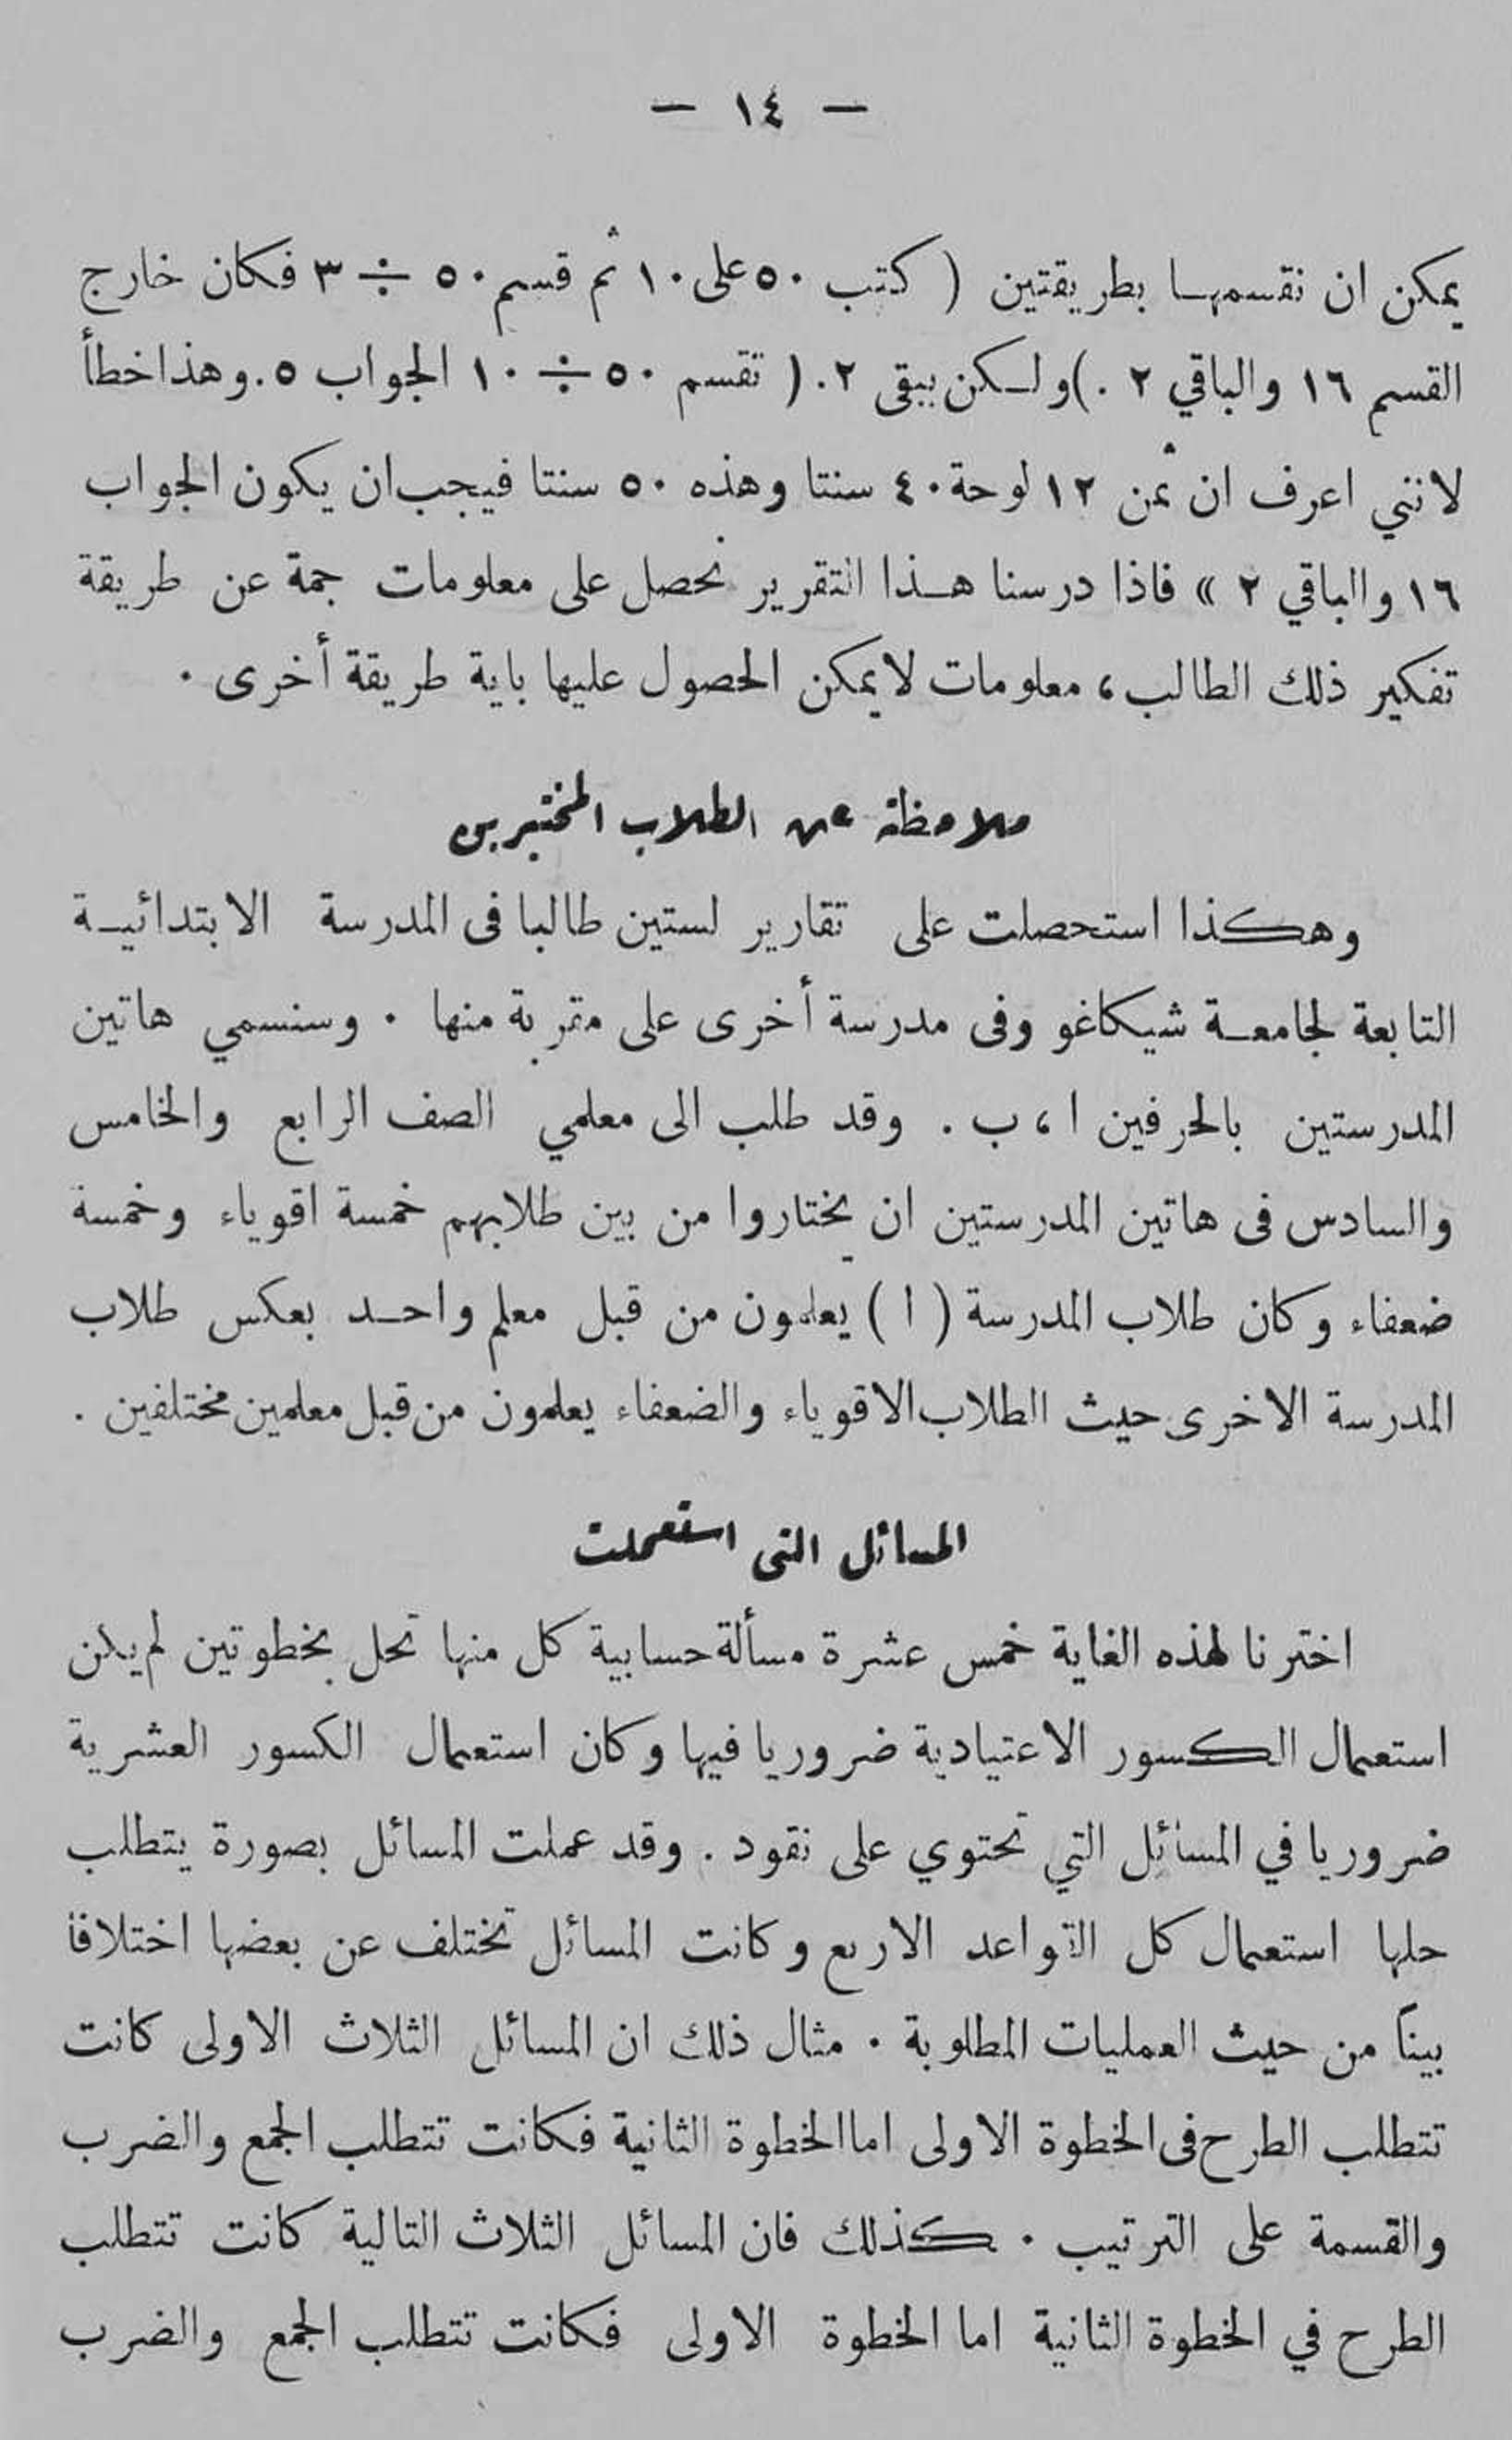 — ١٤ —
يمكن ان نقسمها بطريقتين ( كتب ٥٠ على ١٠ ثم قسم ٥٠ ÷ ٣ فكان خارج
القسم ١٦ والباقي ٢ .) ولكن يبقى ٢. ( تقسم ٥٠ ÷ ١٠ الجواب ٥. وهذا خطأ
لانني اعرف ان ثمن ١٢ لوحة ٤٠ سنتا وهذه ٥٠ سنتا فيجب ان يكون الجواب
١٦ والباقي ٢ » فاذا درسنا هذا التقرير نحصل على معلومات جمة عن طريقة
تفكير ذلك الطالب ، معلومات لا يمكن الحصول عليها باية طريقة أخرى .
ملاحظة عن الطلاب المختبرين
وهكذا استحصلت على تقارير لستين طالبا فى المدرسة الابتدائية
التابعة لجامعة شيكاغو وفى مدرسة أخرى على مقربة منها . وسنسمي هاتين
المدرستين بالحرفين ا ، ب . وقد طلب الى معلمي الصف الرابع والخامس
والسادس فى هاتين المدرستين ان يختاروا من بين طلابهم خمسة اقوياء وخمسة
ضعفاء وكان طلاب المدرسة ( ا ) يعلمون من قبل معلم واحد بعكس طلاب
المدرسة الاخرى حيث الطلاب الاقوياء والضعفاء يعلمون من قبل معلمين مختلفين .
المسائل التى استعملت
اخترنا لهذه الغاية خمس عشرة مسألة حسابية كل منها تحل بخطوتين لم يكن
استعمال الكسور الاعتيادية ضروريا فيها وكان استعمال الكسور العشرية
ضروريا في المسائل التي تحتوي على نقود . وقد عملت المسائل بصورة يتطلب
حلها استعمال كل القواعد الاربع وكانت المسائل تختلف عن بعضها اختلافا
بيناً من حيث العمليات المطلوبة . مثال ذلك ان المسائل الثلاث الاولى كانت
تتطلب الطرح فى الخطوة الاولى اما الخطوة الثانية فكانت تتطلب الجمع والضرب
والقسمة على الترتيب . كذلك فان المسائل الثلاث التالية كانت تتطلب
الطرح في الخطوة الثانية اما الخطوة الاولى فكانت تتطلب الجمع والضرب